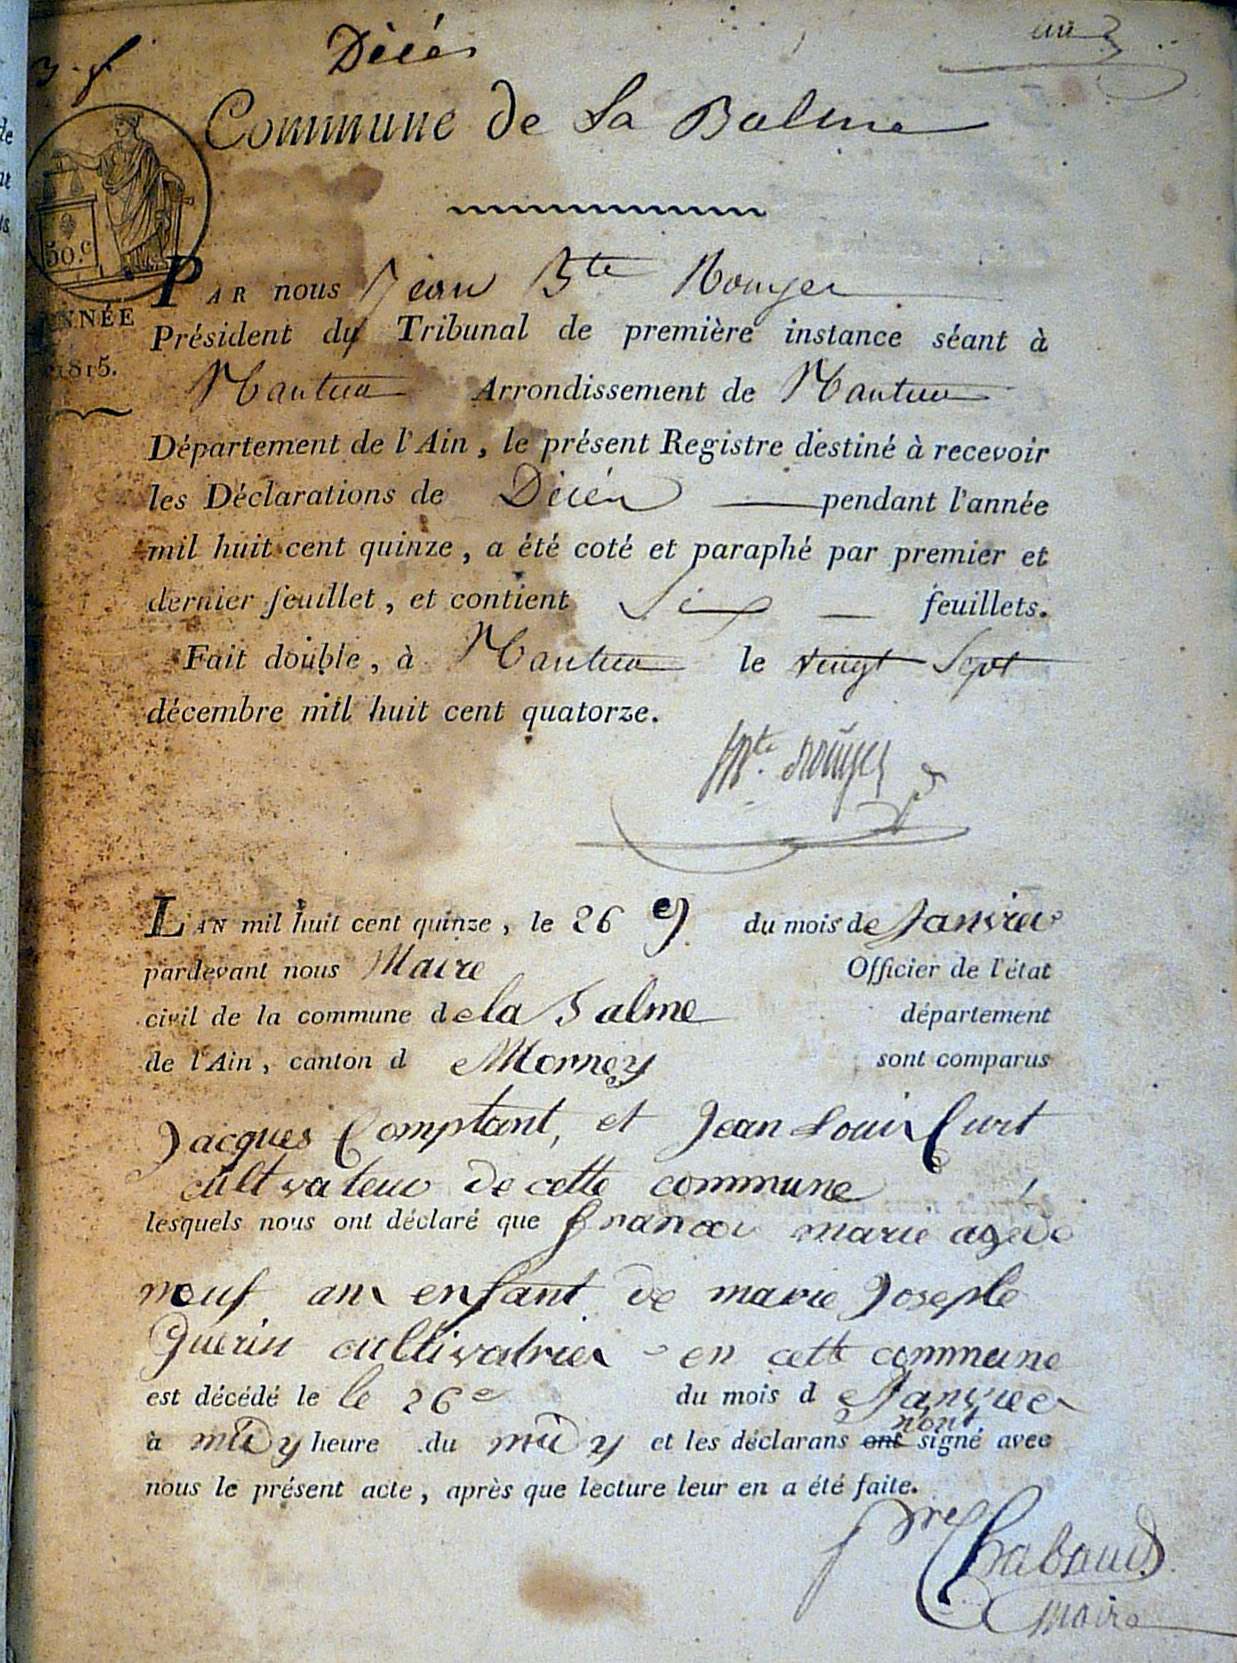 Décés
Commune de La Balme
50.c
ANNÉE
1815.
PAR nous Jean Bte Rouyer
Président du Tribunal de première instance séant à
Nantua Arrondissement de Nantua
Département de l'Ain, le présent Registre destiné à recevoir
les Déclarations de Décés pendant l'année
mil huit cent quinze, a été coté et paraphé par premier et
dernier feuillet, et contient Six feuillets.
Fait double, à Nantua le vingt Sept
décembre mil huit cent quatorze.
LAN mil huit cent quinze, le 26 e du mois de Janvier
pardevant nous Maire Officier de l'état
civil de la commune de la Balme département
de l'Ain, canton d e Mornay sont comparus
Jacques Comptant, et Jean Louis Curt
cultivateur de cette commune
lesquels nous ont déclaré que françois marie agé de
neuf ans enfant de marie Joseple
guerin cultivatrice en cette commune
est décédé le le 26e du mois d e Janvier
à midy heure du midy et les déclarans ont nont signé avec
nous le présent acte, après que lecture leur en a été faite.
Chabaud
Maire